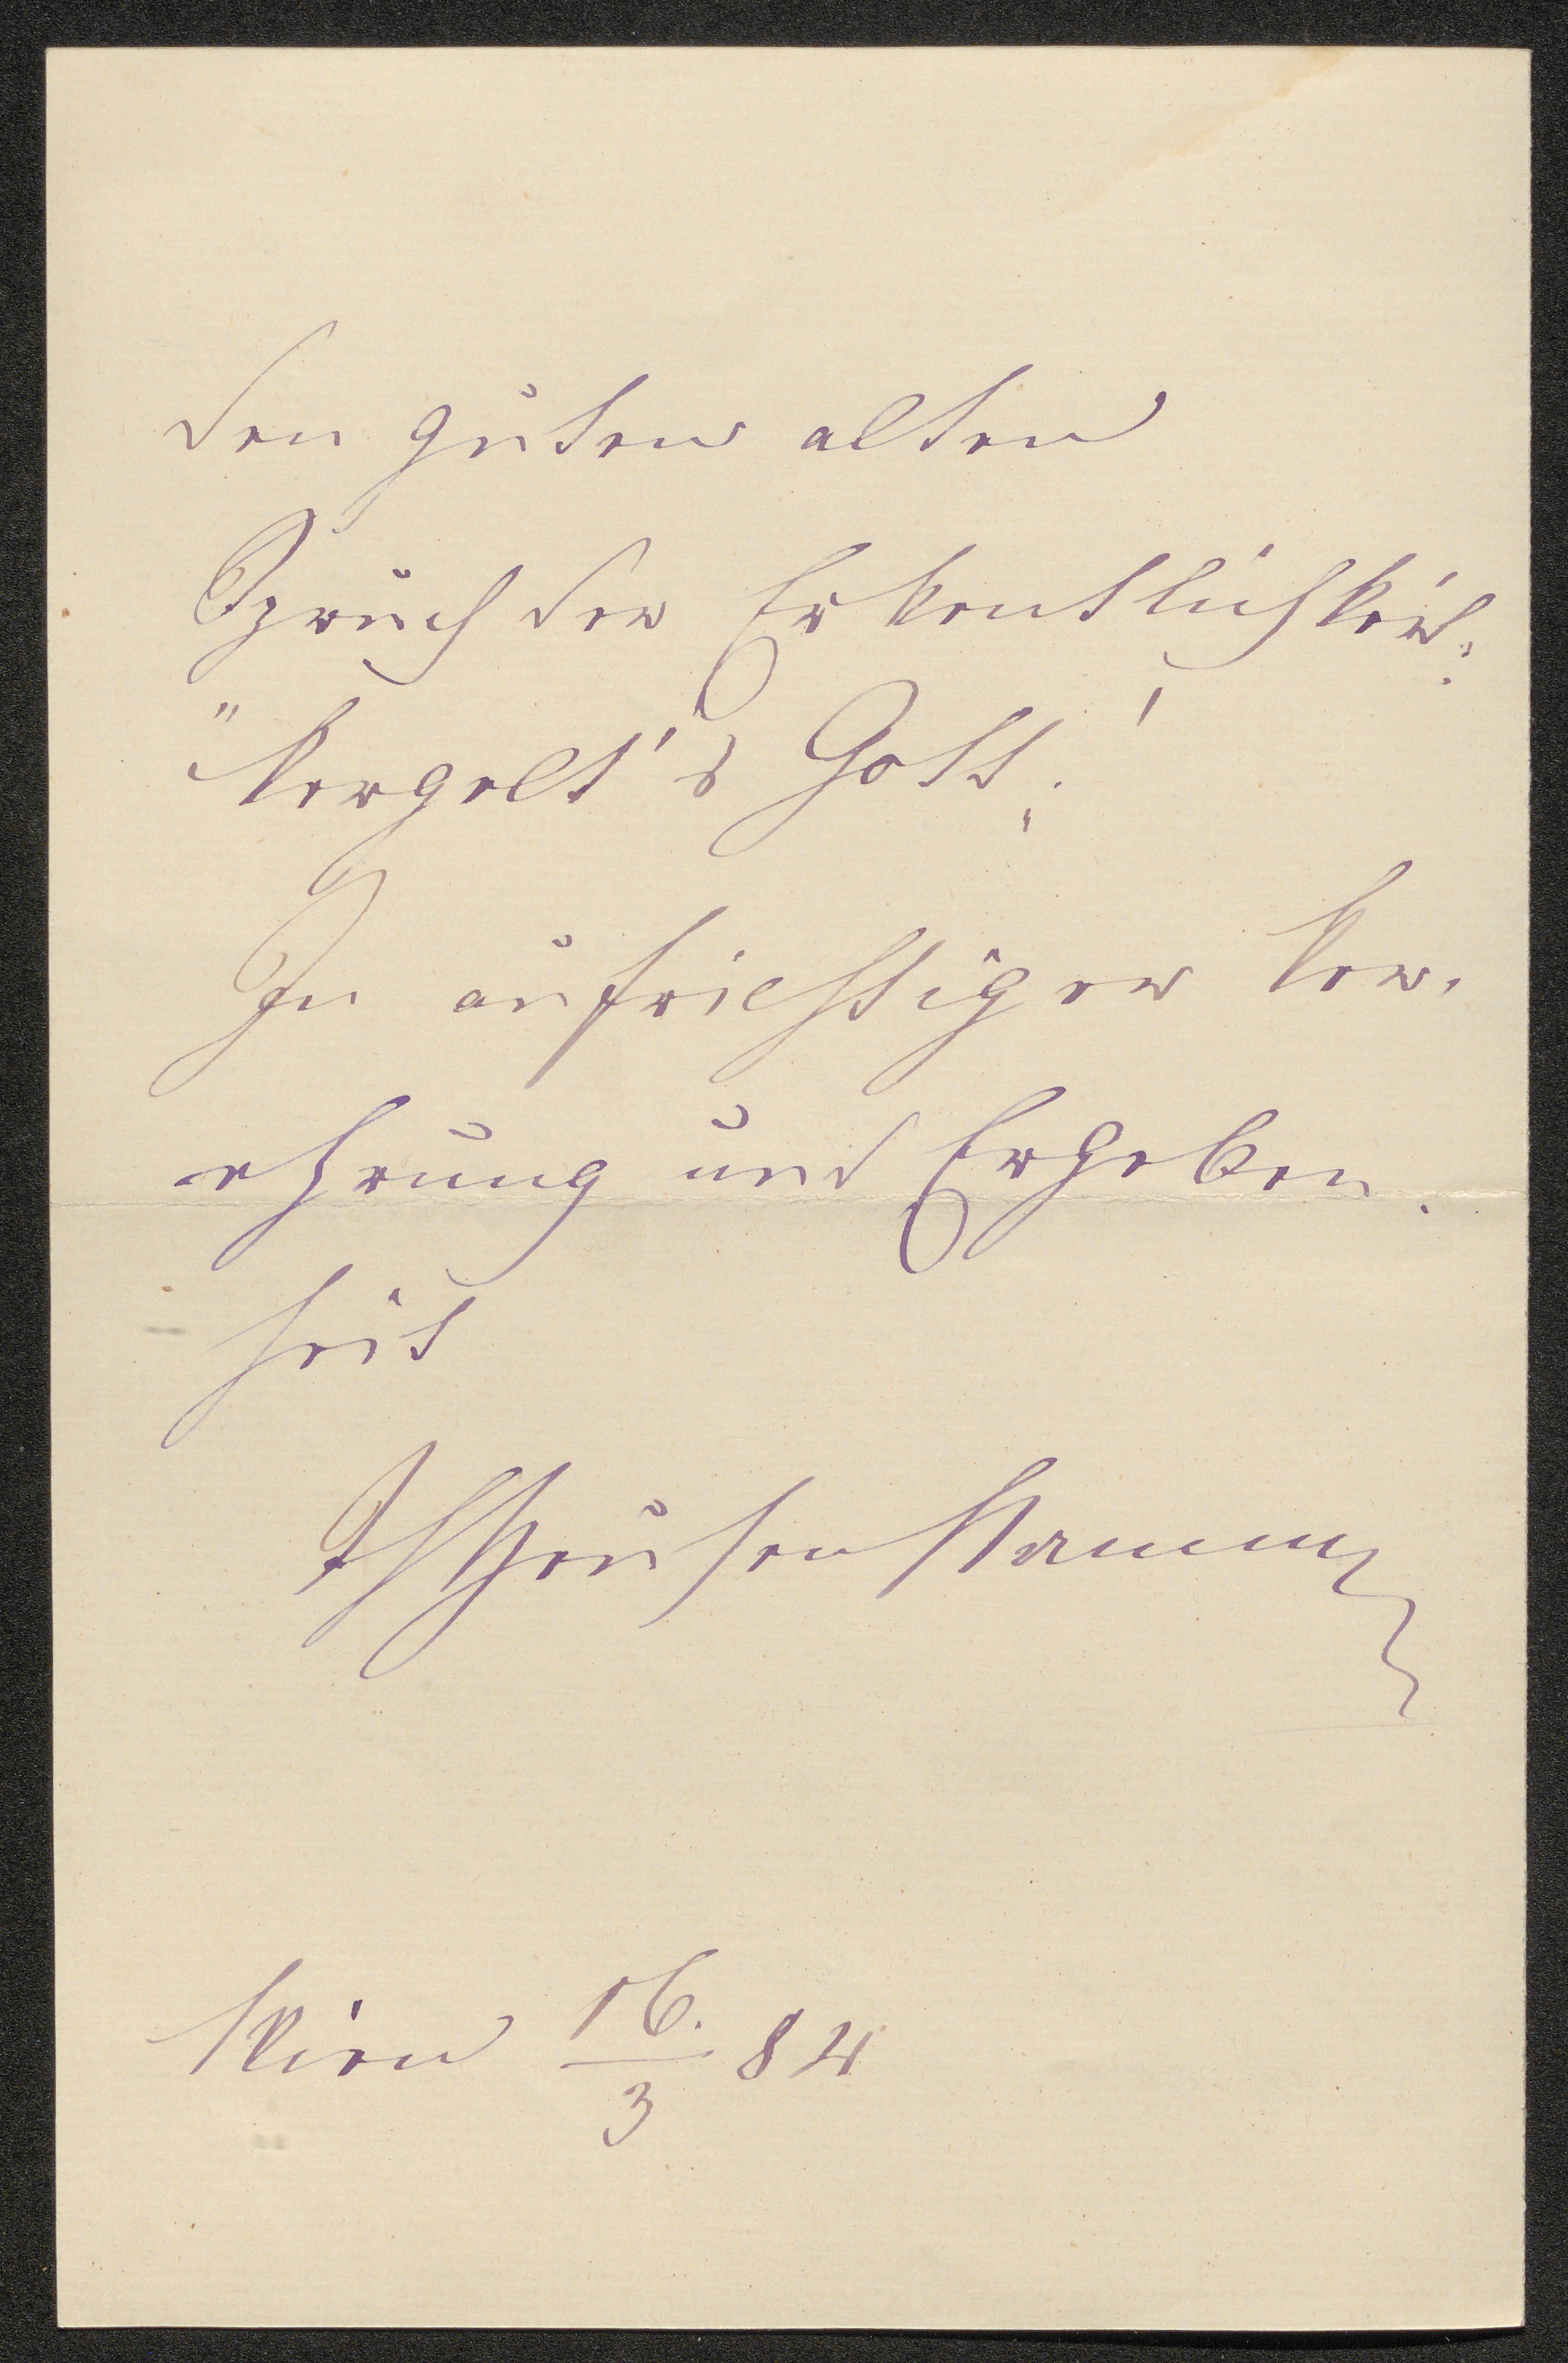 den guten alten
Spruch der Erkentlichkeit:
"Vergelt's Gott!"
In aufrichtiger Ver-
ehrung und Ergeben-
heit
Wien 16./3 84